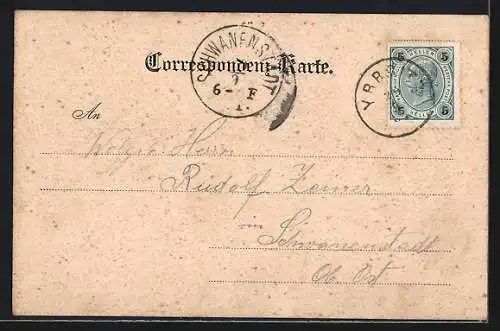 SCHWANENSTADT
6-F
Correspondenz-Karte.
5 HELLER 5
An
Herrn
Rudolf
in
Schwanenstadt
Ob. Öst